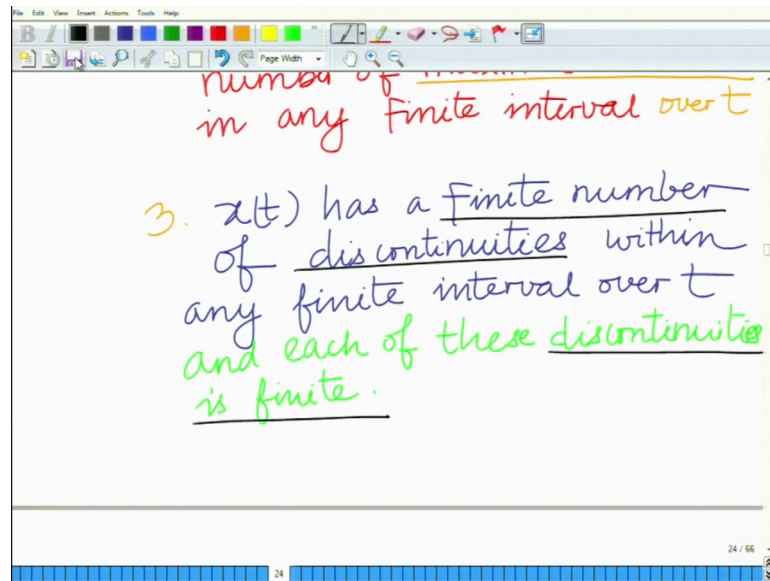 File Edit View Insert Actions Tools Help
B I
Page Width
number of
in any Finite interval over t
3. x(t) has a Finite number
of discontinuities within
any finite interval over t
and each of these discontinuities
is finite.
24 / 66
24